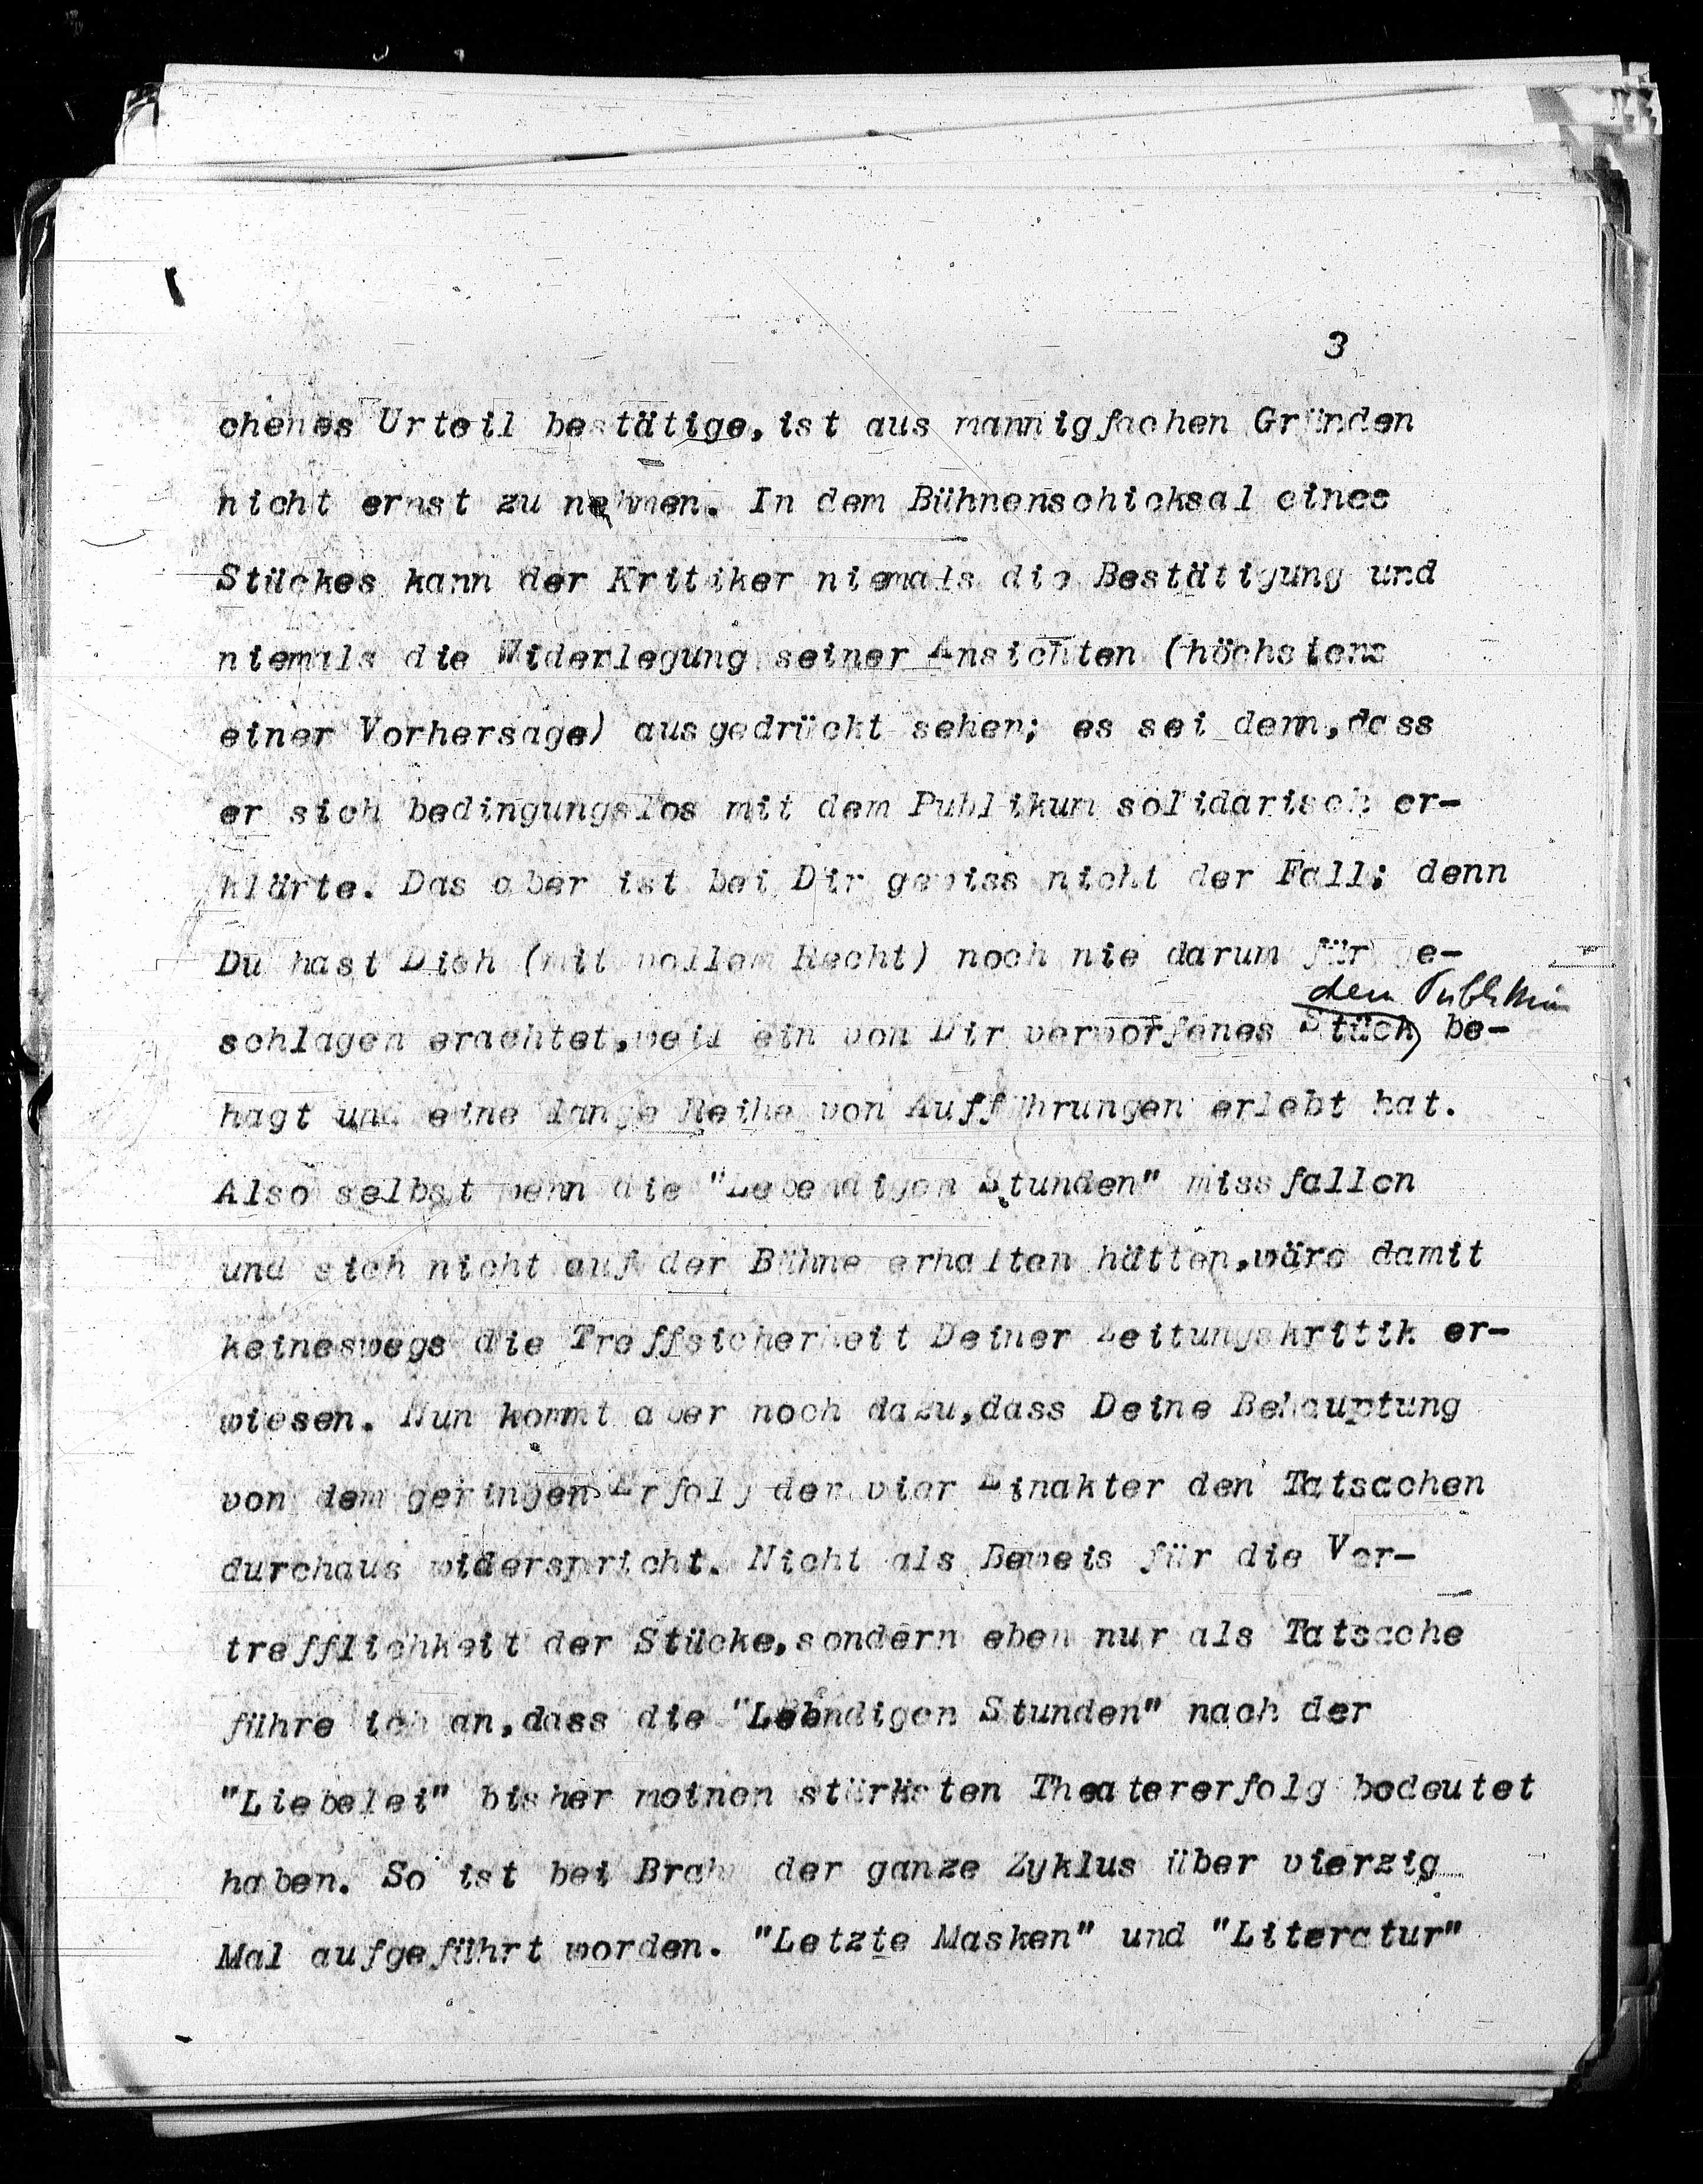 3
chenes Urteil bestätige,ist aus mannigfachen Gründen
nicht ernst zu nehmen. In dem Bühnenschicksal eines
Stückes kann der Kritiker niemals die Bestätigung und
niemals die Widerlegung seiner Ansichten (höchstens
einer Vorhersage) ausgedrückt sehen; es sei denn,dass
er sich bedingungslos mit dem Publikum solidarisch er-
klärte. Das aber ist bei Dir gewiss nicht der Fall; denn
Du hast Dich (mit vollem Recht) noch nie darum für ge-
dem Publikum
schlagen erachtet,weil ein von Dir verworfenes Stück be-
hagt und eine lange Reihe von Aufführungen erlebt hat.
Also selbst wenn die "Lebendigen Stunden" missfallen
und sich nicht auf der Bühne erhalten hätten,wäre damit
keineswegs die Treffsicherheit Deiner Zeitungskritik er-
wiesen. Nun kommt aber noch dazu,dass Deine Behauptung
von dem geringen Erfolg der vier Einakter den Tatsachen
durchaus widerspricht. Nicht als Beweis für die Vor-
trefflichkeit der Stücke,sondern eben nur als Tatsache
führe ich an,dass die "Lebendigen Stunden" nach der
"Liebelei" bisher meinen stärksten Theatererfolg bedeutet
haben. So ist bei Brahm der ganze Zyklus über vierzig
Mal aufgeführt worden. "Letzte Masken" und "Literatur"